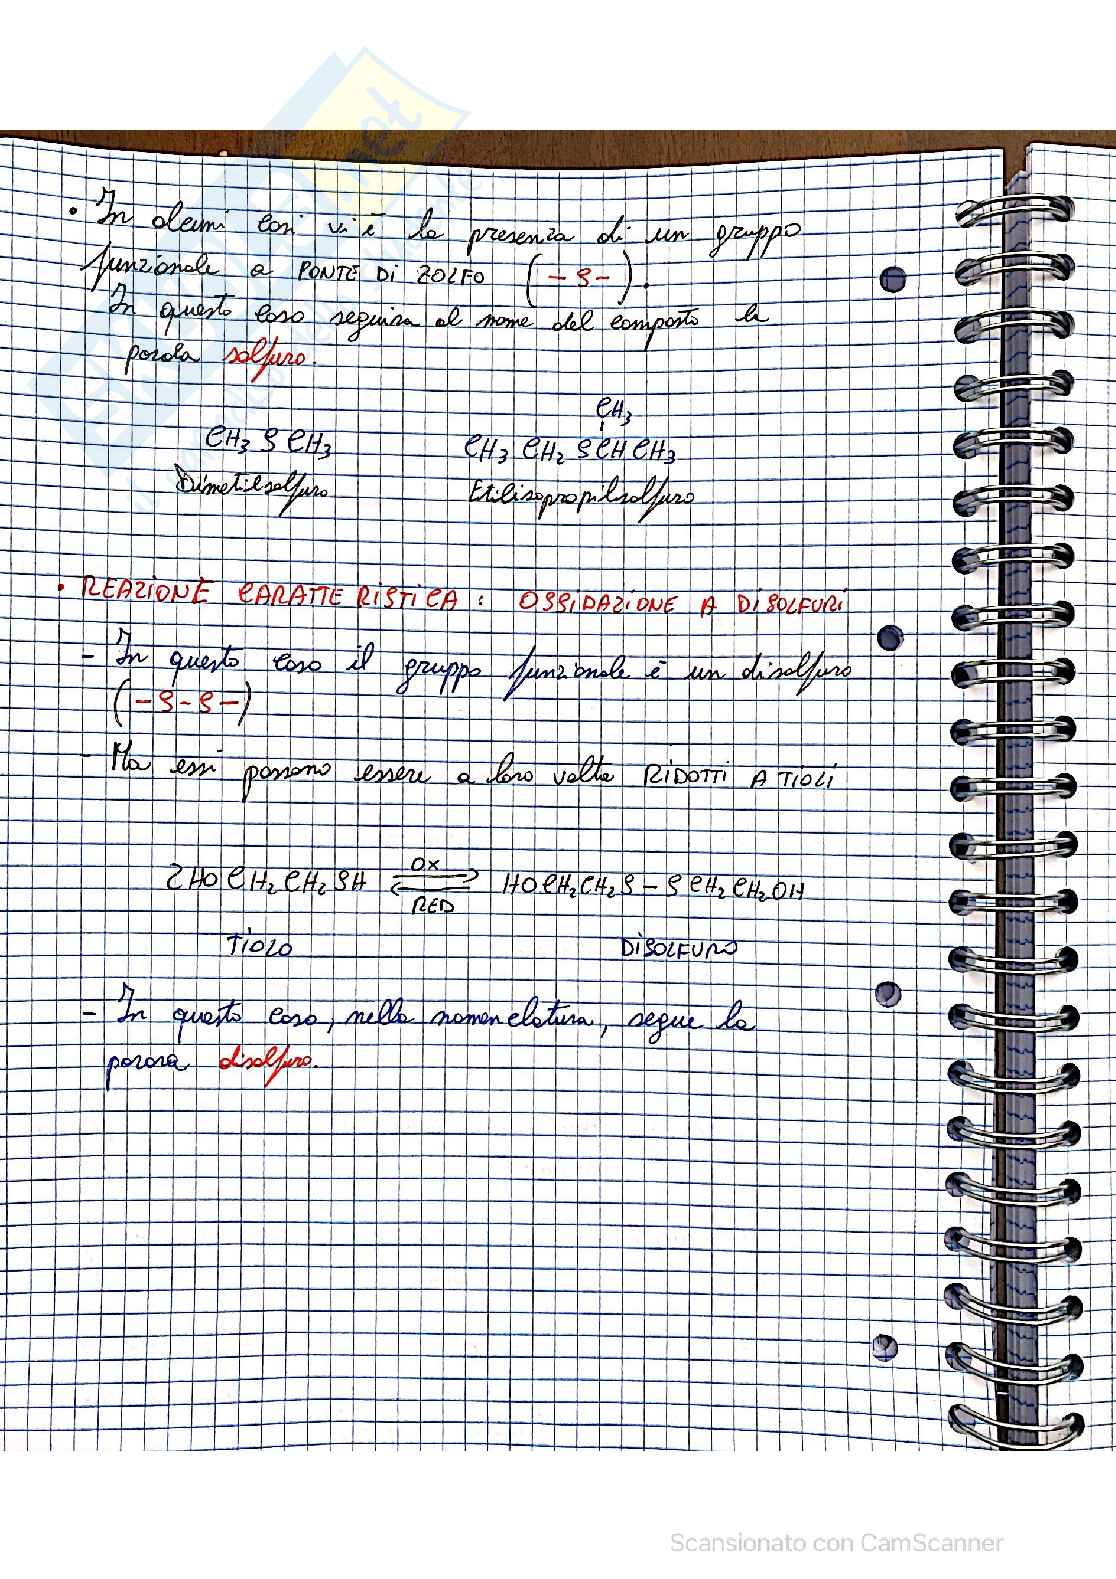 • In alcuni casi vi è la presenza di un gruppo
funzionale a PONTE DI ZOLFO (-S-).
In questo caso seguira al nome del composto la
parola solfuro.
CH3
CH3 S CH3 CH3 CH2 SCHCH3
Dimetilsolfuro Etilisopropilsolfuro
• REAZIONE CARATTERISTICA: OSSIDAZIONE A DISOLFURI
- In questo caso il gruppo funzionale è un disolfuro
(-S-S-)
- Ma essi possono essere a loro volta RIDOTTI A TIOLI
OX
2HOCH2CH2SH ⇌ HOCH2CH2S-SCH2CH2OH
RED
TIOLO DISOLFURO
- In questo caso, nella nomenclatura, segue la
parora disolfuro.
Scansionato con CamScanner